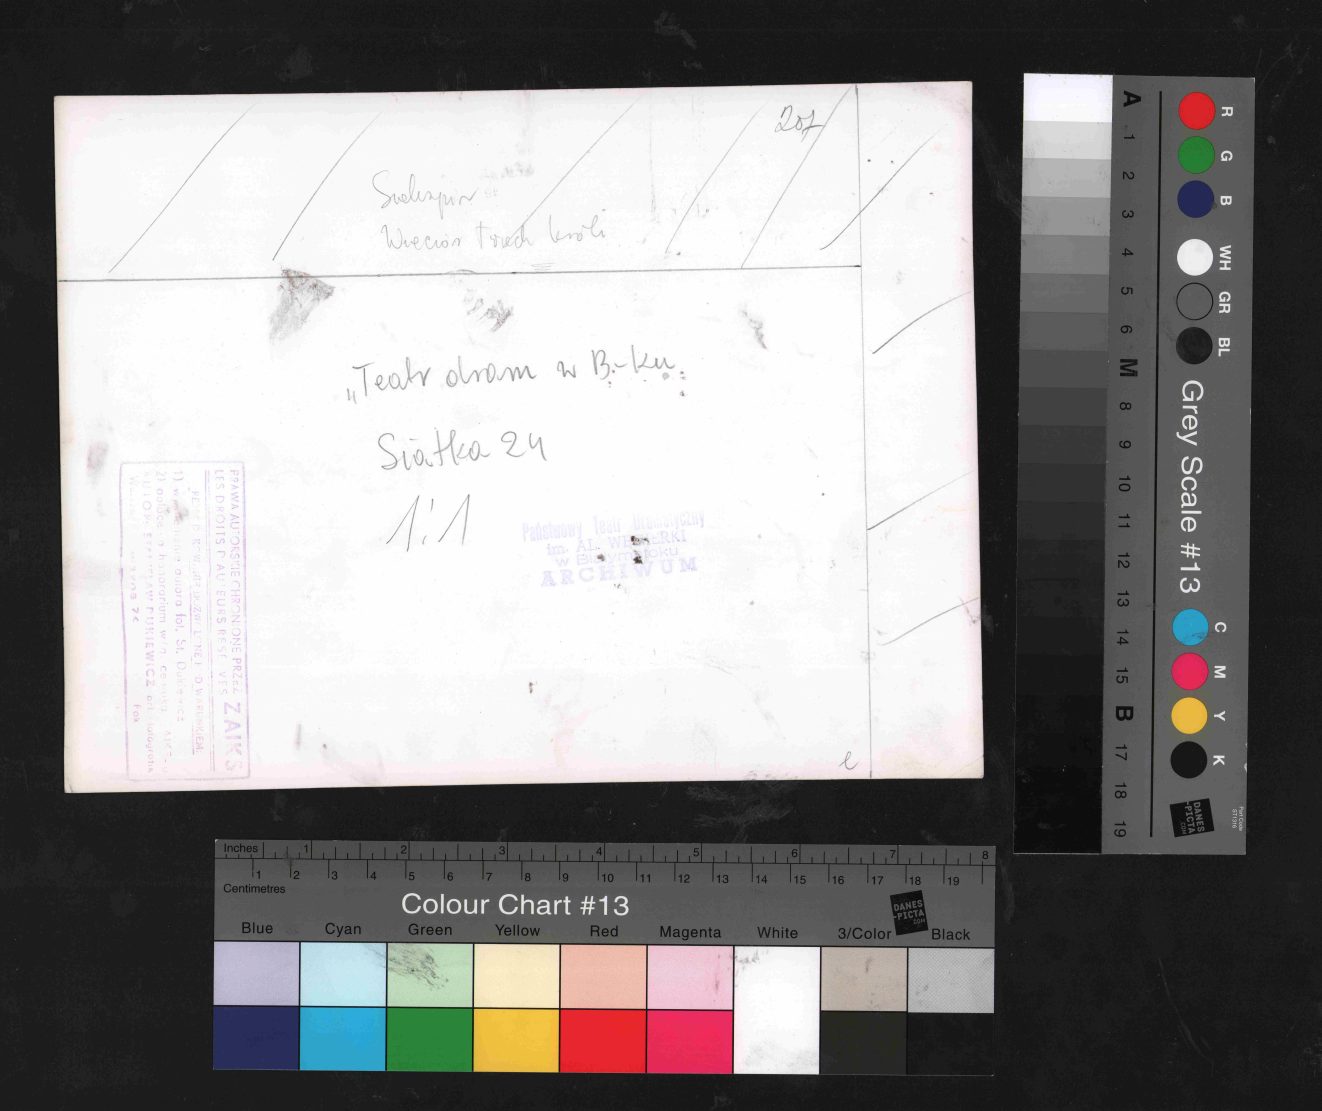 207
Szekspir
Wieczór trzech króli
„Teatr dram w B.-ku
Siatka 24
1:1
Państwowy Teatr Dramatyczny
im. AL. WĘGIERKI
w Białymstoku
ARCHIWUM
e
PRAWA AUTORSKIE CHRONIONE PRZEZ ZAIKS
LES DROITS D'AUTEURS RESERVES
1) autora fot. St.
2) honorarium
fotografik
A 1 2 3 4 5 6 M 8 9 10 11 12 13 14 15 B 17 18 19
R G B WH GR BL
Grey Scale #13
C M Y K
DANES
-PICTA
.COM
Part Code
ST1316
Inches 1 2 3 4 5 6 7 8
1 2 3 4 5 6 7 8 9 10 11 12 13 14 15 16 17 18 19
Centimetres
Colour Chart #13
DANES
-PICTA
.COM
Blue Cyan Green Yellow Red Magenta White 3/Color Black